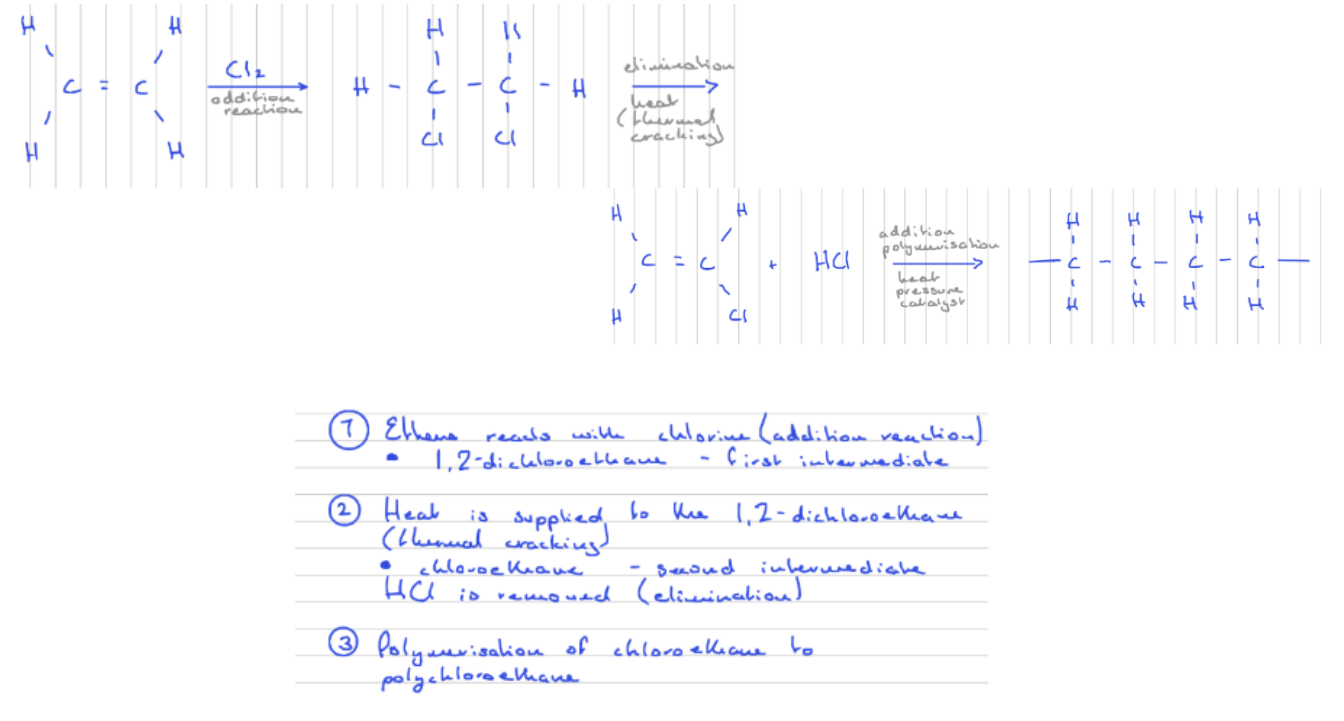 H H H H
C = C Cl2 H - C - C - H elimination
addition
reaction
heat
(thermal
cracking)
H H Cl Cl
H H
C = C + HCl
H Cl
addition
polymerisation
heat
pressure
catalyst
H H H H
— C - C - C - C —
H H H H
① Ethene reacts with chlorine (addition reaction)
• 1,2-dichloroethane - first intermediate
② Heat is supplied to the 1,2-dichloroethane
(thermal cracking)
• chloroethane - second intermediate
HCl is removed (elimination)
③ Polymerisation of chloroethane to
polychloroethane